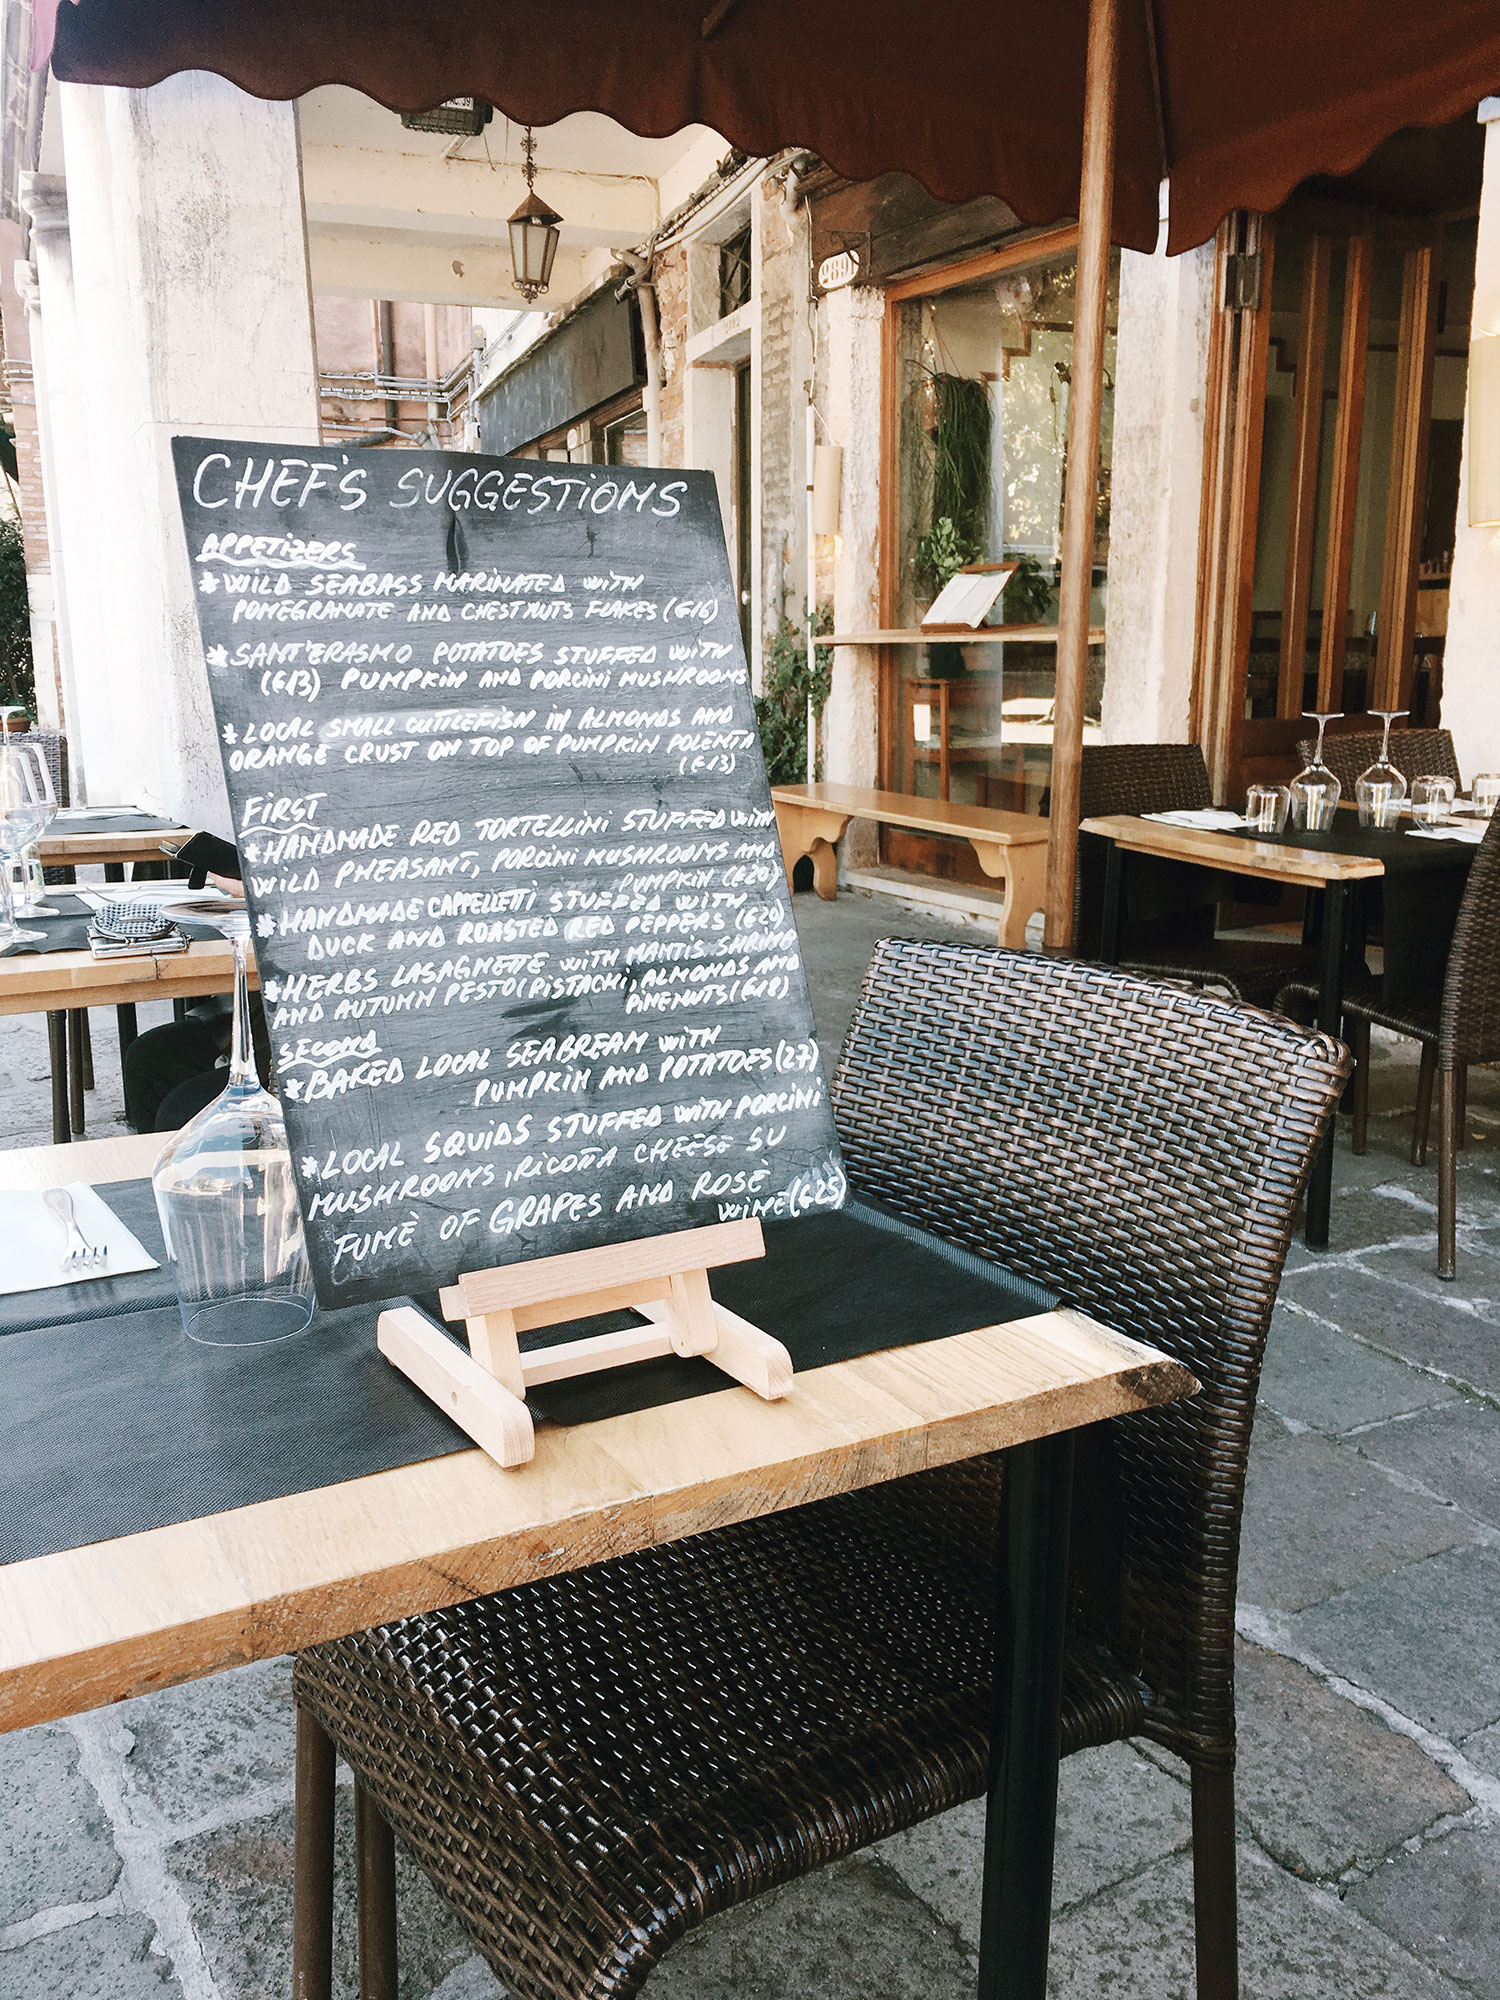 CHEF'S SUGGESTIONS
APPETIZERS
*WILD SEABASS MARINATED WITH
POMEGRANATE AND CHESTNUTS FLAKES (€16)
*SANT'ERASMO POTATOES STUFFED WITH
(€13) PUMPKIN AND PORCINI MUSHROOMS
*LOCAL SMALL CUTTLEFISH IN ALMONDS AND
ORANGE CRUST ON TOP OF PUMPKIN POLENTA
(€13)
FIRST
*HANDMADE RED TORTELLINI STUFFED WITH
WILD PHEASANT, PORCINI MUSHROOMS AND
PUMPKIN (€20)
*HANDMADE CAPPELLETTI STUFFED WITH
DUCK AND ROASTED RED PEPPERS (€20)
*HERBS LASAGNETTE WITH MANTIS SHRIMP
AND AUTUMN PESTO (PISTACHI, ALMONDS AND
PINENUTS (€18)
SECOND
*BAKED LOCAL SEABREAM WITH
PUMPKIN AND POTATOES (27)
*LOCAL SQUIDS STUFFED WITH PORCINI
MUSHROOMS, RICOTTA CHEESE SU
FUMÈ OF GRAPES AND ROSÈ
WINE (€25)